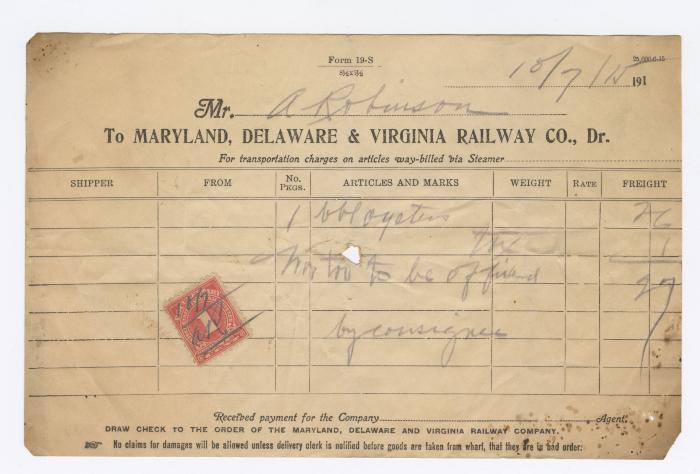 Form 19-S
8½x5½
25,000-6-15
10/7/15 191
Mr. A Robinson
To MARYLAND, DELAWARE & VIRGINIA RAILWAY CO., Dr.
For transportation charges on articles way-billed via Steamer
SHIPPER FROM No. Pkgs. ARTICLES AND MARKS WEIGHT RATE FREIGHT
1 bbl oysters 26
tax 1
to be 27
10/7
by consignee
Received payment for the Company Agent.
DRAW CHECK TO THE ORDER OF THE MARYLAND, DELAWARE AND VIRGINIA RAILWAY COMPANY.
No claims for damages will be allowed unless delivery clerk is notified before goods are taken from wharf, that they are in bad order.